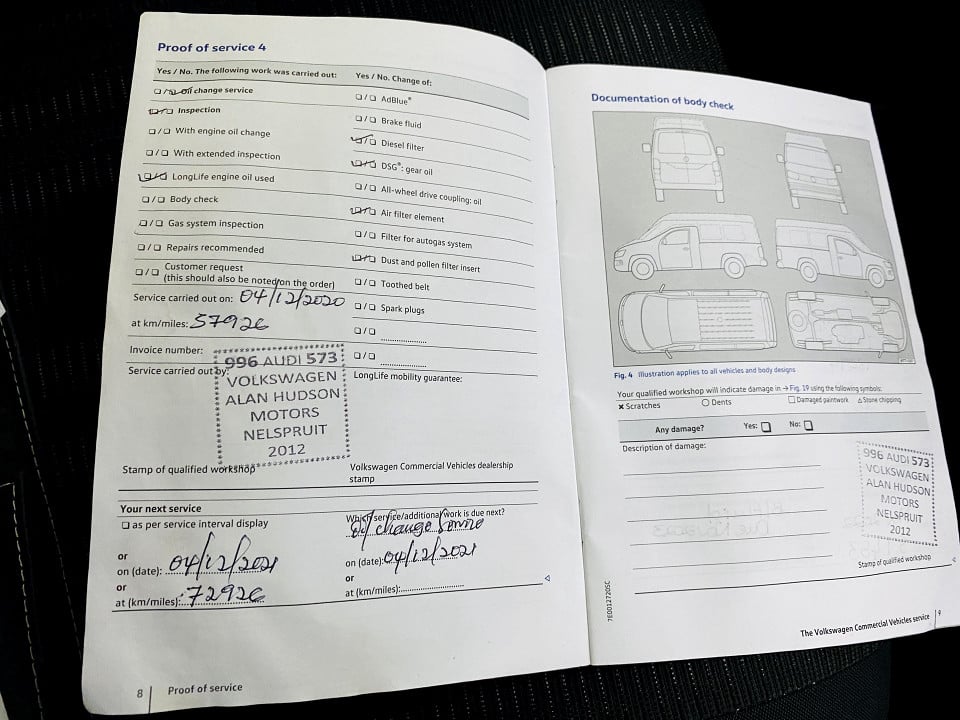 Proof of service 4
Yes / No. The following work was carried out:
☐/☐ Oil change service
☐/☐ Inspection
☐/☐ With engine oil change
☐/☐ With extended inspection
☐/☐ LongLife engine oil used
☐/☐ Body check
☐/☐ Gas system inspection
☐/☐ Repairs recommended
☐/☐ Customer request
(this should also be noted on the order)
Service carried out on: 04/12/2020
at km/miles: 57926
Invoice number:
Service carried out by:
996 AUDI 573
VOLKSWAGEN
ALAN HUDSON
MOTORS
NELSPRUIT
2012
Stamp of qualified workshop
Yes / No. Change of:
☐/☐ AdBlue®
☐/☐ Brake fluid
☐/☐ Diesel filter
☐/☐ DSG®: gear oil
☐/☐ All-wheel drive coupling: oil
☐/☐ Air filter element
☐/☐ Filter for autogas system
☐/☐ Dust and pollen filter insert
☐/☐ Toothed belt
☐/☐ Spark plugs
☐/☐ ....................
☐/☐ ....................
LongLife mobility guarantee:
Volkswagen Commercial Vehicles dealership
stamp
Your next service
☐ as per service interval display
or
on (date): 04/12/2021
or
at (km/miles): 72926
Which service/additional work is due next?
Oil change
on (date): 04/12/2021
or
at (km/miles):....................
8 | Proof of service
Documentation of body check
Fig. 4 Illustration applies to all vehicles and body designs
Your qualified workshop will indicate damage in → Fig. 19 using the following symbols:
✗ Scratches ○ Dents ☐ Damaged paintwork △ Stone chipping
Any damage? Yes: ☐ No: ☐
Description of damage:
996 AUDI 573
VOLKSWAGEN
ALAN HUDSON
MOTORS
NELSPRUIT
2012
Stamp of qualified workshop
7E0012720SC
The Volkswagen Commercial Vehicles service | 9